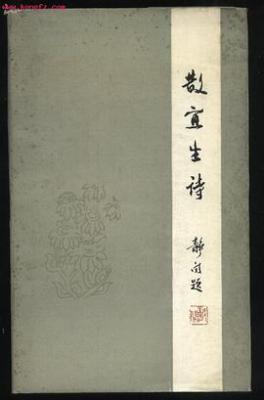 www.kongfz.com
散宜生诗
静闻题